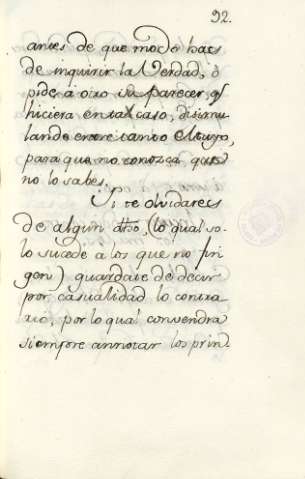 92.
antes de que modo has
de inquirir la Verdad, ò
pide à otro su parecer, q̃
hiciera en tal caso, disimu
lando entre tanto el tuyo,
para que no conozca que
no lo sabes.
Si te olvidareis
de algun dho, (lo qual so-
lo sucede à los que no fin
gen) guardate de decir
por casualidad lo contra
rio, por lo qual convendra
siempre annotar los prin.